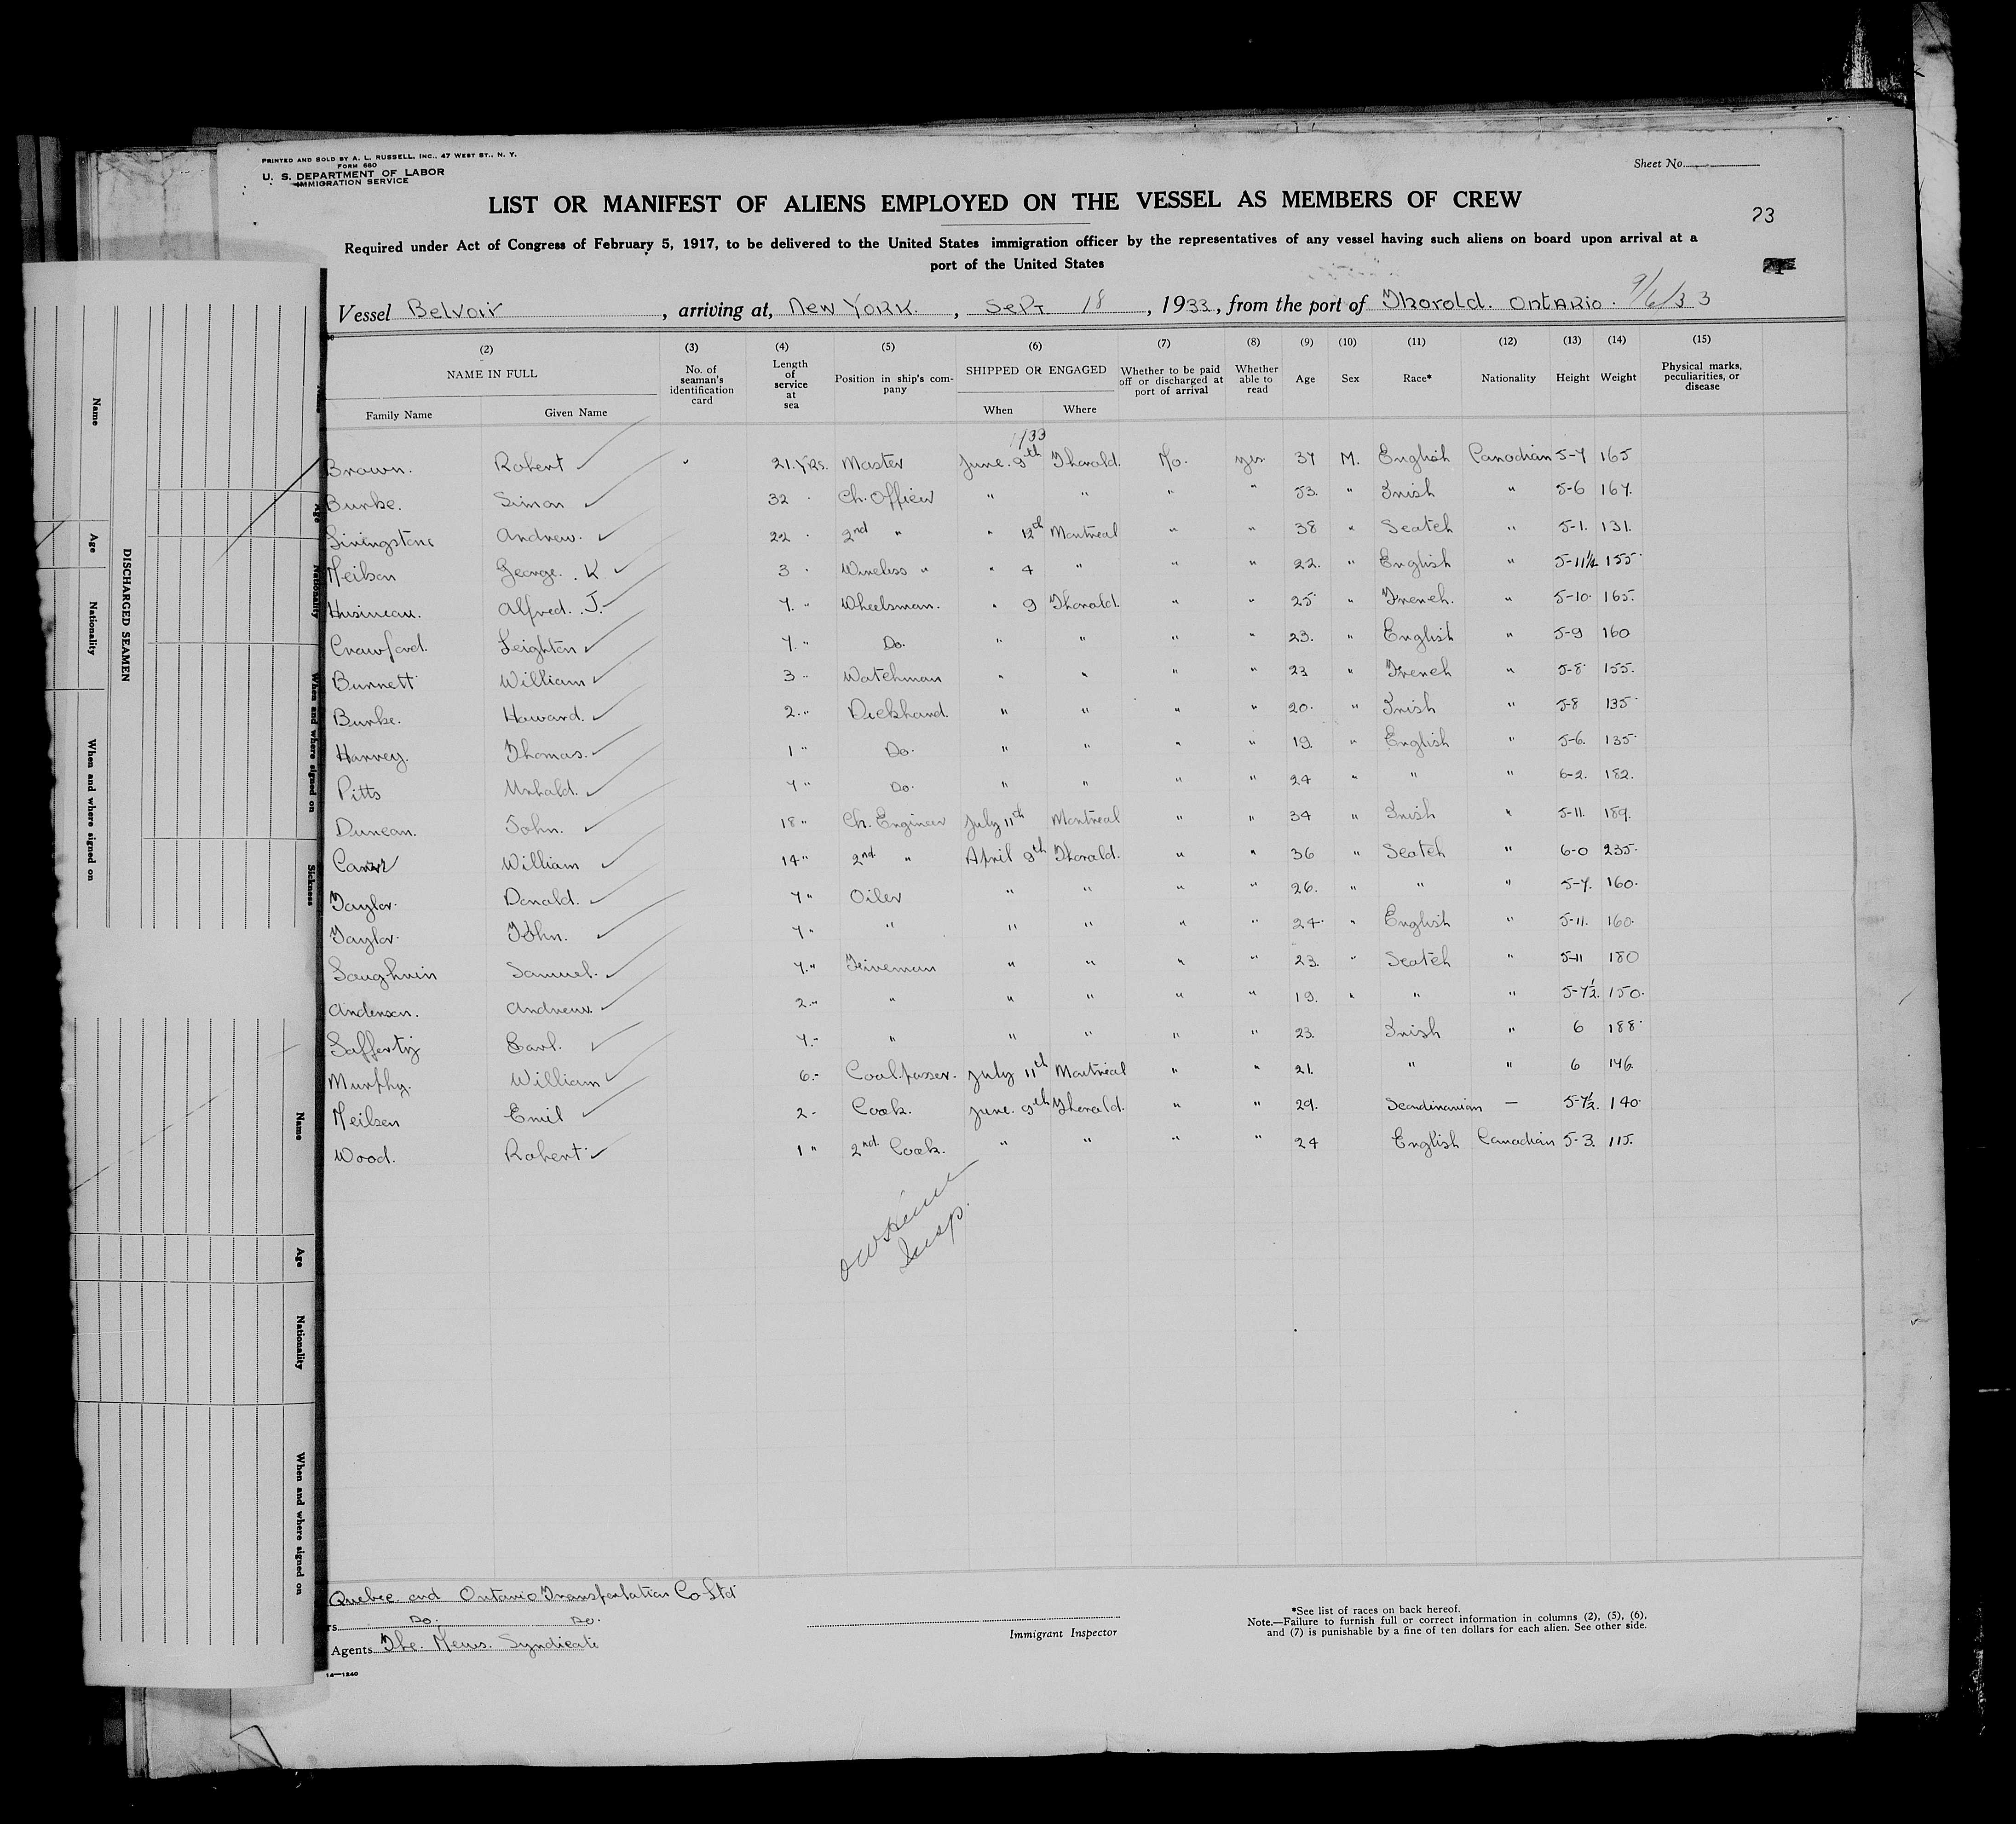 PRINTED AND SOLD BY A. L. RUSSELL, INC., 47 WEST ST., N. Y.
FORM 680
U. S. DEPARTMENT OF LABOR
IMMIGRATION SERVICE
Sheet No.
LIST OR MANIFEST OF ALIENS EMPLOYED ON THE VESSEL AS MEMBERS OF CREW
23
Required under Act of Congress of February 5, 1917, to be delivered to the United States immigration officer by the representatives of any vessel having such aliens on board upon arrival at a
port of the United States
Vessel Belvoir, arriving at, New York., Sept 18, 1933, from the port of Thorold. Ontario. 9/6/33
(2) (3) (4) (5) (6) (7) (8) (9) (10) (11) (12) (13) (14) (15)
NAME IN FULL
Family Name Given Name
No. of seaman's identification card
Length of service at sea
Position in ship's company
SHIPPED OR ENGAGED
When Where
Whether to be paid off or discharged at port of arrival
Whether able to read
Age
Sex
Race*
Nationality
Height
Weight
Physical marks, peculiarities, or disease
/33
Brown. Robert 21. Yrs. Master June. 9th Thorold. No. yes 37 M. English Canadian 5-7 165
Burke. Simon 32 " Ch. Officer " " " " 53. " Irish " 5-6 167.
Livingstone Andrew. 22 " 2nd " " 12th Montreal " " 38 " Scotch " 5-1. 131.
Neilson George. K 3 " Wireless " " 4 " " " 22. " English " 5-11¼ 155
Husineau. Alfred. J. 7. " Wheelsman. " 9 Thorold. " " 25 " French. " 5-10 165.
Crawford. Leighton 7. " Do. " " " " 23. " English " 5-9 160
Burnett William 3 " Watchman " " " " 23 " French " 5-8 155.
Burke. Howard. 2. " Deckhand. " " " " 20. " Irish " 5-8 135
Harvey. Thomas. 1 " Do. " " " " 19. " English " 5-6. 135
Pitts 7 " Do. " " " " 24 " " " 6-2. 182.
Duncan. John. 18 " Ch. Engineer July 11th Montreal " " 34 " Irish " 5-11. 189.
William 14 " 2nd " April 9th Thorold. " " 36 " Scotch " 6-0 235.
Taylor. Donald. 7 " Oiler " " " " 26. " " " 5-7. 160.
Taylor. John. 7 " " " " " " 24. " English " 5-11. 160.
Loughrin Samuel. 7. " Fireman " " " " 23. " Scotch " 5-11 180
Anderson. Andrew. 2. " " " " " " 19. " " " 5-7½. 150.
Lafferty Earl. 7. " " " " " " 23. Irish " 6 188
Murphy. William 6. " Coal.passer. July 11th Montreal " " 21. " " 6 146.
Neilsen Emil 2 - Cook. June. 9th Thorold. " " 29. Scandinavian — 5-7½. 140.
Wood. Robert 1 " 2nd Cook. " " " " 24 English Canadian 5-3. 115.
Insp.
Quebec and Ontario Transportation Co Ltd
rs Do. Do.
Agents The News. Syndicate
14—1240
Immigrant Inspector
*See list of races on back hereof.
Note.—Failure to furnish full or correct information in columns (2), (5), (6),
and (7) is punishable by a fine of ten dollars for each alien. See other side.
DISCHARGED SEAMEN
Name
Age
Nationality
When and where signed on
Age
Nationality
When and where signed on
Sickness
Name
Age
Nationality
When and where signed on